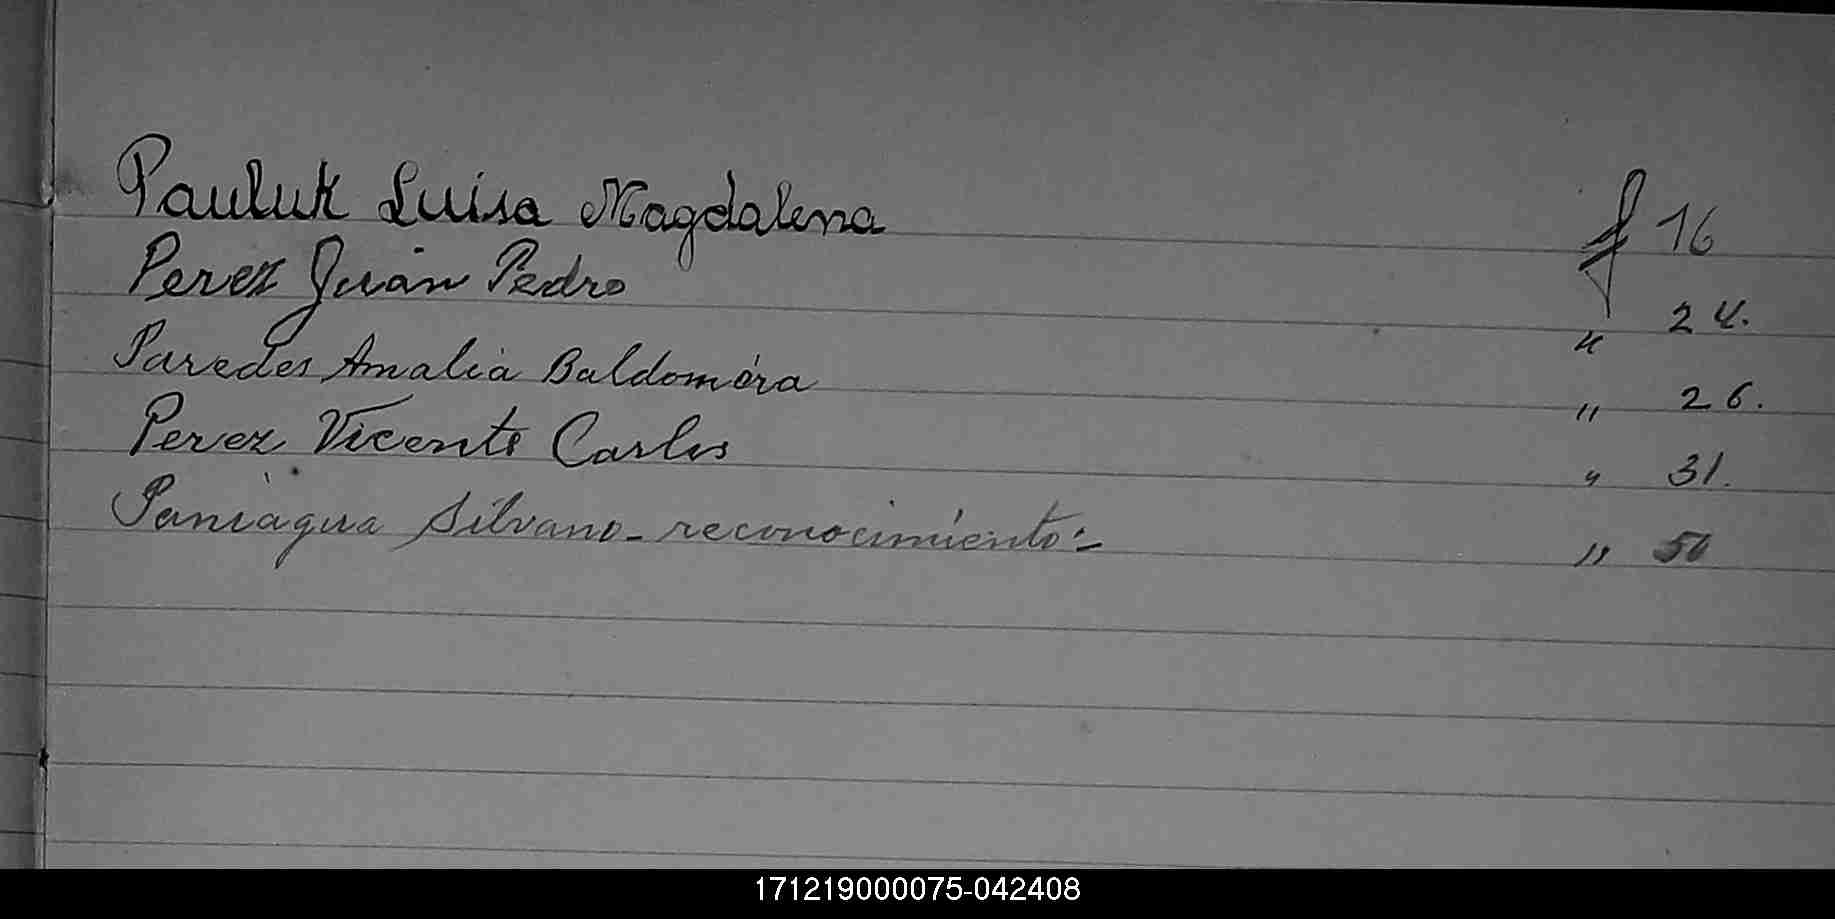 Pauluk Luisa Magdalena f 16
Perez Juan Pedro " 24.
Paredes Amalia Baldoméra " 26.
Perez Vicente Carlos " 31.
Paniagua Silvano - reconocimiento:- " 50
171219000075-042408